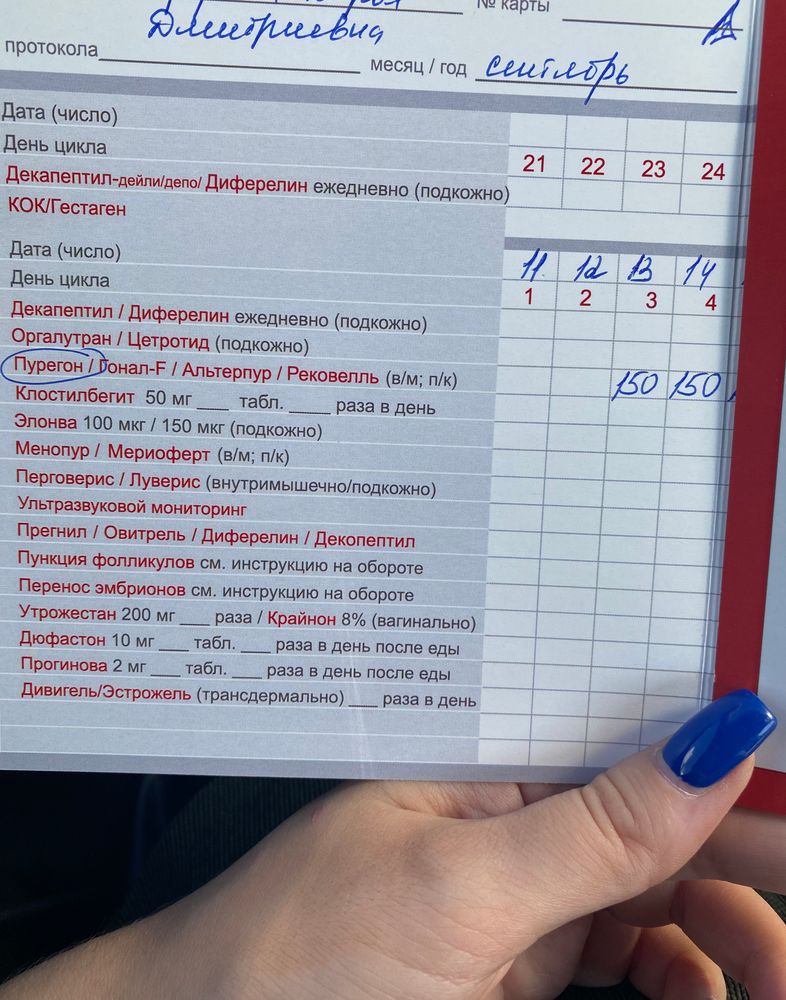 № карты
Дмитриевна
протокола месяц / год сентябрь
Дата (число)
День цикла 21 22 23 24
Декапептил-дейли/депо/ Диферелин ежедневно (подкожно)
КОК/Гестаген
Дата (число) 11 12 13 14
День цикла 1 2 3 4
Декапептил / Диферелин ежедневно (подкожно)
Оргалутран / Цетротид (подкожно)
Пурегон / Гонал-F / Альтерпур / Рековелль (в/м; п/к) 150 150
Клостилбегит 50 мг ___ табл. ____ раза в день
Элонва 100 мкг / 150 мкг (подкожно)
Менопур / Мериоферт (в/м; п/к)
Перговерис / Луверис (внутримышечно/подкожно)
Ультразвуковой мониторинг
Прегнил / Овитрель / Диферелин / Декопептил
Пункция фолликулов см. инструкцию на обороте
Перенос эмбрионов см. инструкцию на обороте
Утрожестан 200 мг ___ раза / Крайнон 8% (вагинально)
Дюфастон 10 мг ___ табл. ___ раза в день после еды
Прогинова 2 мг ___ табл. ___ раза в день после еды
Дивигель/Эстрожель (трансдермально) ___ раза в день